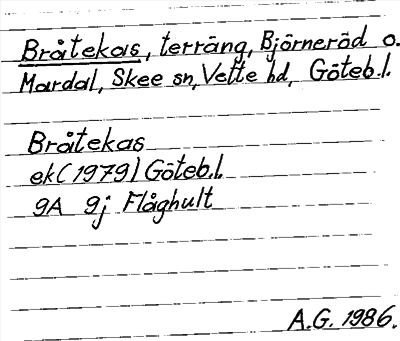 Bråtekas, terräng, Björneröd o.
Mardal, Skee sn, Vette hd, Göteb.l.
Bråtekas
ek (1979) Göteb.l.
9A 9j Flåghult
A.G. 1986.